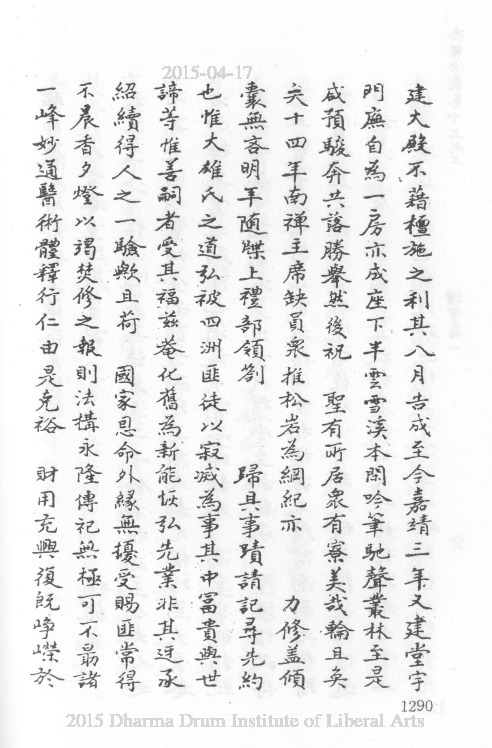 2015-04-17
建大殿不藉檀施之利其八月告成至今嘉靖三年又建堂宇
門廡自為一房亦成座下半雲雪溪本閑吟筆馳聲叢林至是
咸預駿奔共落勝舉然後祝 聖有所居衆有寮美哉輪且奐
矣十四年南禅主席缺員衆推松岩為綱紀亦 力修盖傾
囊無吝明年随牒上禮部領劄 歸具事蹟請記尋先約
也惟大雄氏之道弘被四洲匪徒以寂滅為事其中冨貴與世
諦等惟善嗣者受其福茲菴化舊為新能恢弘先業非其迓承
紹續得人之一驗歟且荷 國家恩命外緣無擾受賜匪常得
不晨香夕燈以竭焚修之報則法構永隆傳祀無極可不勗諸
一峰妙通醫術體釋行仁由是克裕 財用充興復既崢嶸於
1290
2015 Dharma Drum Institute of Liberal Arts